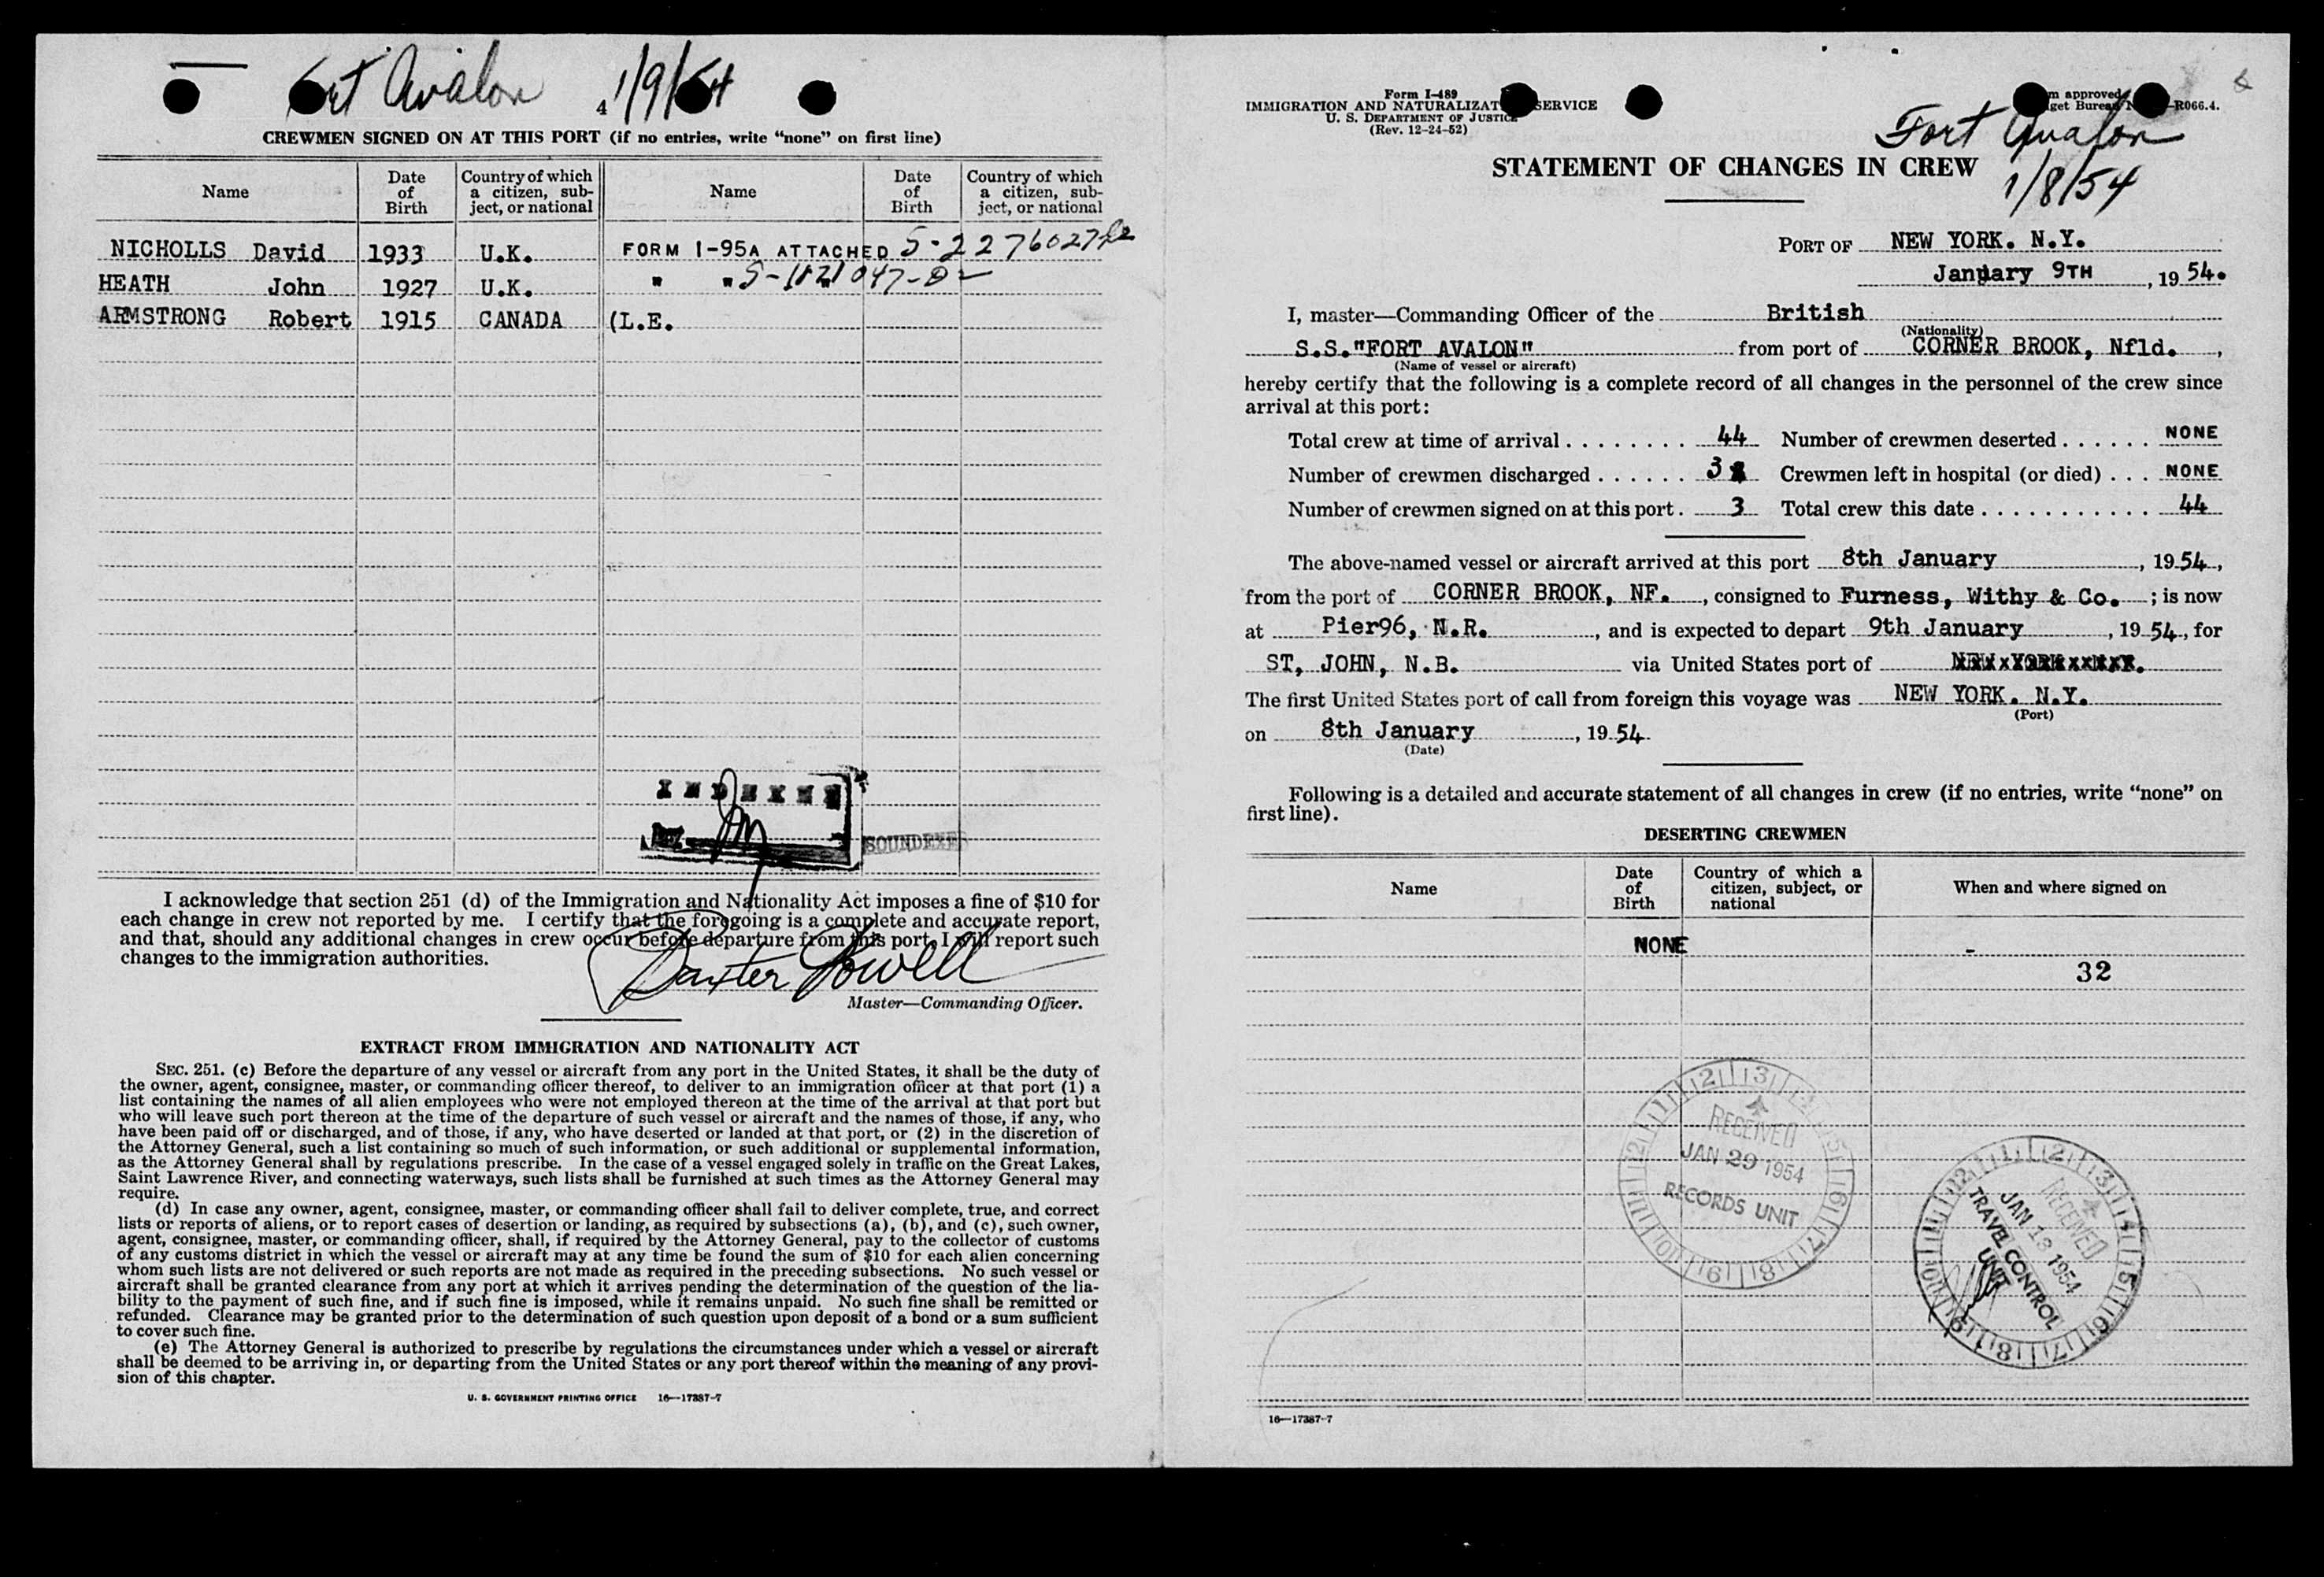 Fort Avalon 1/9/54
4
CREWMEN SIGNED ON AT THIS PORT (if no entries, write "none" on first line)
Name Date of Birth Country of which a citizen, subject, or national Name Date of Birth Country of which a citizen, subject, or national
NICHOLLS David 1933 U.K. FORM I-95A ATTACHED
HEATH John 1927 U.K. " "
ARMSTRONG Robert 1915 CANADA (L.E.
INDEXED
SOUNDEXED
I acknowledge that section 251 (d) of the Immigration and Nationality Act imposes a fine of $10 for
each change in crew not reported by me. I certify that the foregoing is a complete and accurate report,
and that, should any additional changes in crew occur before departure from this port, I will report such
changes to the immigration authorities.
Baxter Powell
Master—Commanding Officer.
EXTRACT FROM IMMIGRATION AND NATIONALITY ACT
SEC. 251. (c) Before the departure of any vessel or aircraft from any port in the United States, it shall be the duty of
the owner, agent, consignee, master, or commanding officer thereof, to deliver to an immigration officer at that port (1) a
list containing the names of all alien employees who were not employed thereon at the time of the arrival at that port but
who will leave such port thereon at the time of the departure of such vessel or aircraft and the names of those, if any, who
have been paid off or discharged, and of those, if any, who have deserted or landed at that port, or (2) in the discretion of
the Attorney General, such a list containing so much of such information, or such additional or supplemental information,
as the Attorney General shall by regulations prescribe. In the case of a vessel engaged solely in traffic on the Great Lakes,
Saint Lawrence River, and connecting waterways, such lists shall be furnished at such times as the Attorney General may
require.
(d) In case any owner, agent, consignee, master, or commanding officer shall fail to deliver complete, true, and correct
lists or reports of aliens, or to report cases of desertion or landing, as required by subsections (a), (b), and (c), such owner,
agent, consignee, master, or commanding officer, shall, if required by the Attorney General, pay to the collector of customs
of any customs district in which the vessel or aircraft may at any time be found the sum of $10 for each alien concerning
whom such lists are not delivered or such reports are not made as required in the preceding subsections. No such vessel or
aircraft shall be granted clearance from any port at which it arrives pending the determination of the question of the lia-
bility to the payment of such fine, and if such fine is imposed, while it remains unpaid. No such fine shall be remitted or
refunded. Clearance may be granted prior to the determination of such question upon deposit of a bond or a sum sufficient
to cover such fine.
(e) The Attorney General is authorized to prescribe by regulations the circumstances under which a vessel or aircraft
shall be deemed to be arriving in, or departing from the United States or any port thereof within the meaning of any provi-
sion of this chapter.
U. S. GOVERNMENT PRINTING OFFICE 16—17387-7
Form I-489
IMMIGRATION AND NATURALIZATION SERVICE
U. S. DEPARTMENT OF JUSTICE
(Rev. 12-24-52)
m approved
get Bureau N -R066.4.
Fort Avalon
1/8/54
STATEMENT OF CHANGES IN CREW
PORT OF NEW YORK. N.Y.
January 9TH, 19 54.
I, master—Commanding Officer of the British
(Nationality)
S.S."FORT AVALON" from port of CORNER BROOK, Nfld.,
(Name of vessel or aircraft)
hereby certify that the following is a complete record of all changes in the personnel of the crew since
arrival at this port:
Total crew at time of arrival 44 Number of crewmen deserted NONE
Number of crewmen discharged 3 Crewmen left in hospital (or died) NONE
Number of crewmen signed on at this port. 3 Total crew this date 44
The above-named vessel or aircraft arrived at this port 8th January, 19 54,
from the port of CORNER BROOK, NF., consigned to Furness, Withy & Co. ; is now
at Pier96, N.R., and is expected to depart 9th January, 19 54, for
ST, JOHN, N.B. via United States port of
The first United States port of call from foreign this voyage was NEW YORK. N.Y.
(Port)
on 8th January, 19 54
(Date)
Following is a detailed and accurate statement of all changes in crew (if no entries, write "none" on
first line).
DESERTING CREWMEN
Name Date of Birth Country of which a citizen, subject, or national When and where signed on
NONE -
32
RECEIVED
JAN 29 1954
RECORDS UNIT
RECEIVED
JAN 13 1954
TRAVEL CONTROL
UNIT
16—17387-7